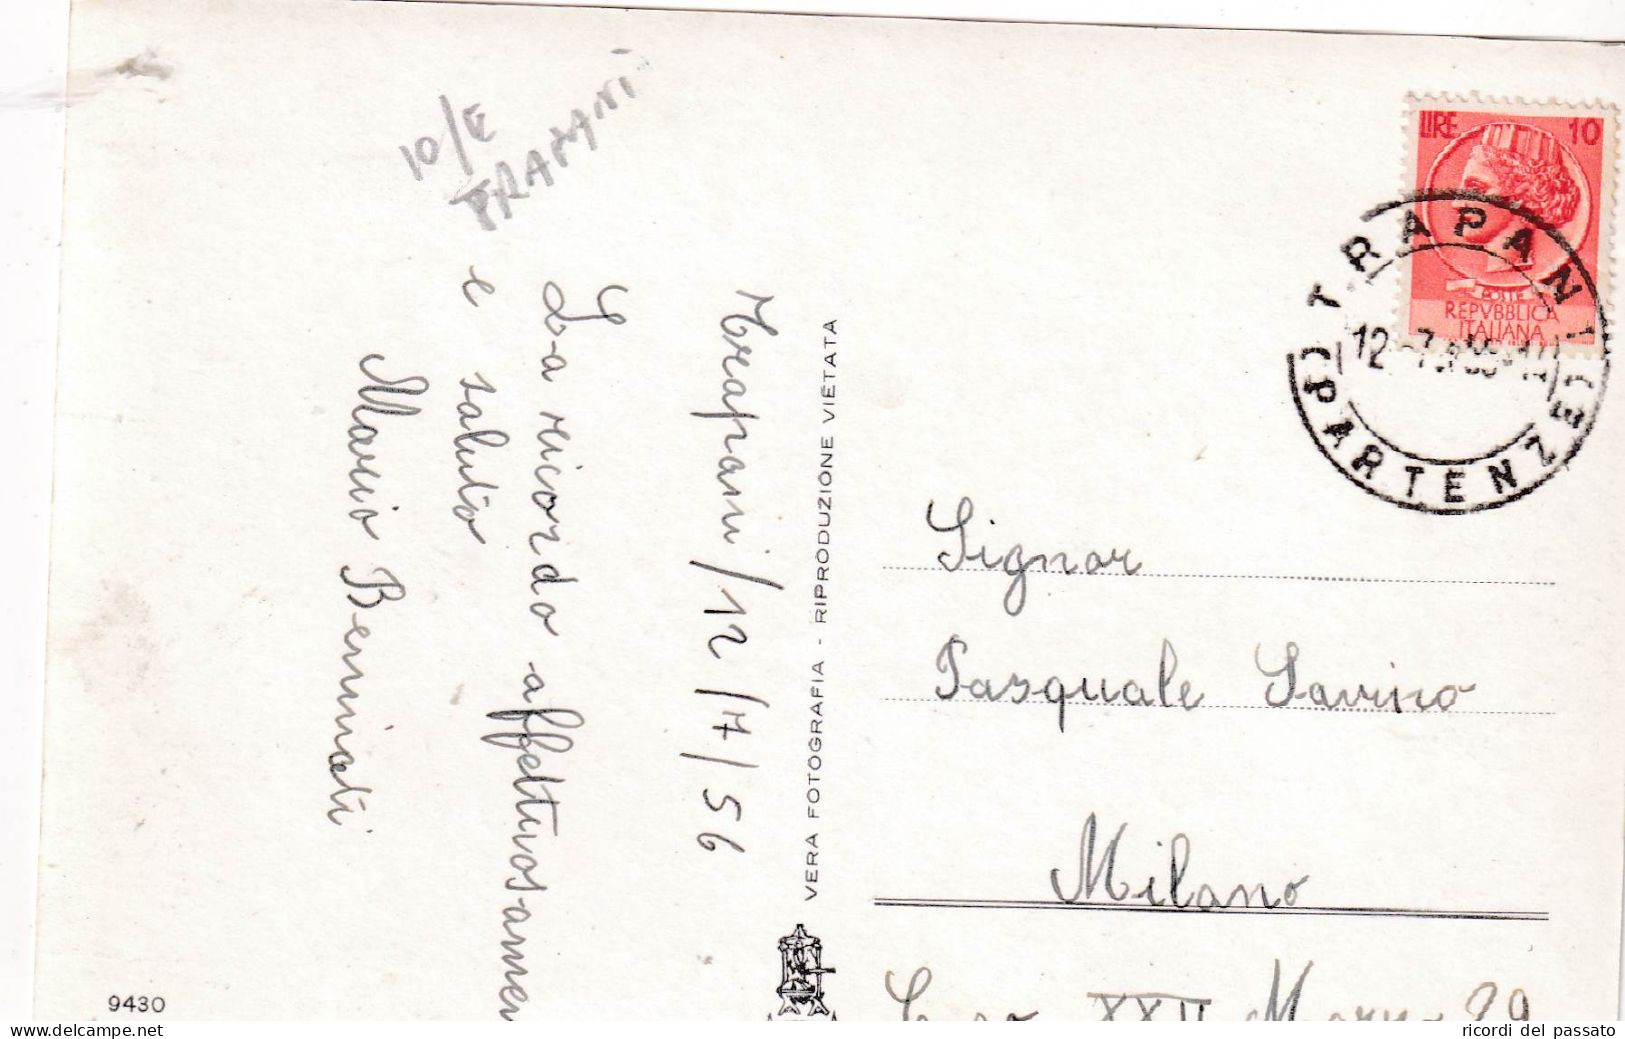 10/E
TRAPANI
Trapani/12/7/56
La ricordo affettuosamen
e saluto
Mario
9430
VERA FOTOGRAFIA - RIPRODUZIONE VIETATA
LIRE 10
POSTE
REPVBBLICA
ITALIANA
TRAPANI
12 -7
PARTENZE
Signor
Pasquale Savino
Milano
Corso XXII Marzo 29
ricordi del passato